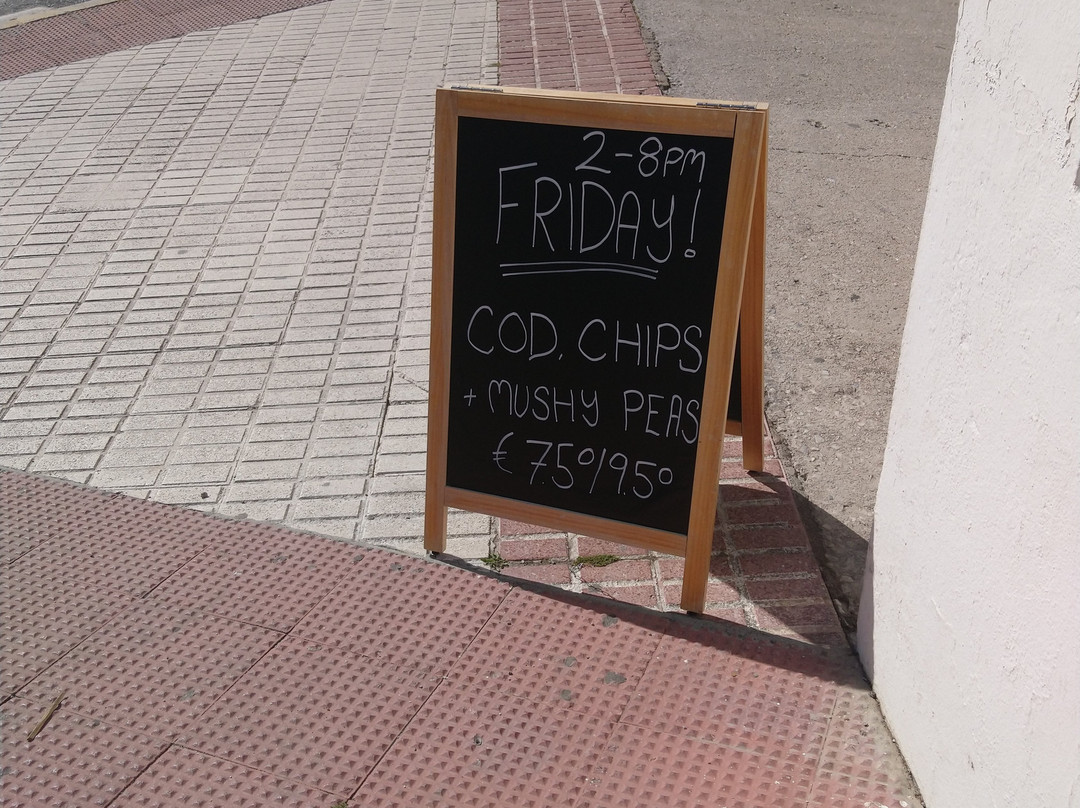 2-8PM
FRIDAY!
COD, CHIPS
+ MUSHY PEAS
€ 7.50/9.50